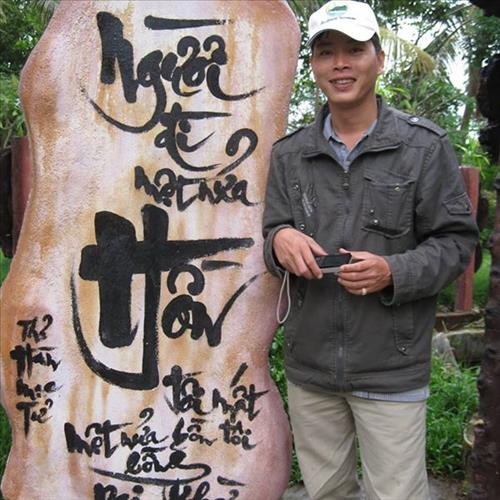 Người
đi
một nửa
Hồn
tôi mất
một nửa hồn tôi
bỗng
Dại Khờ
Thơ
Hàn
mạc
Tử